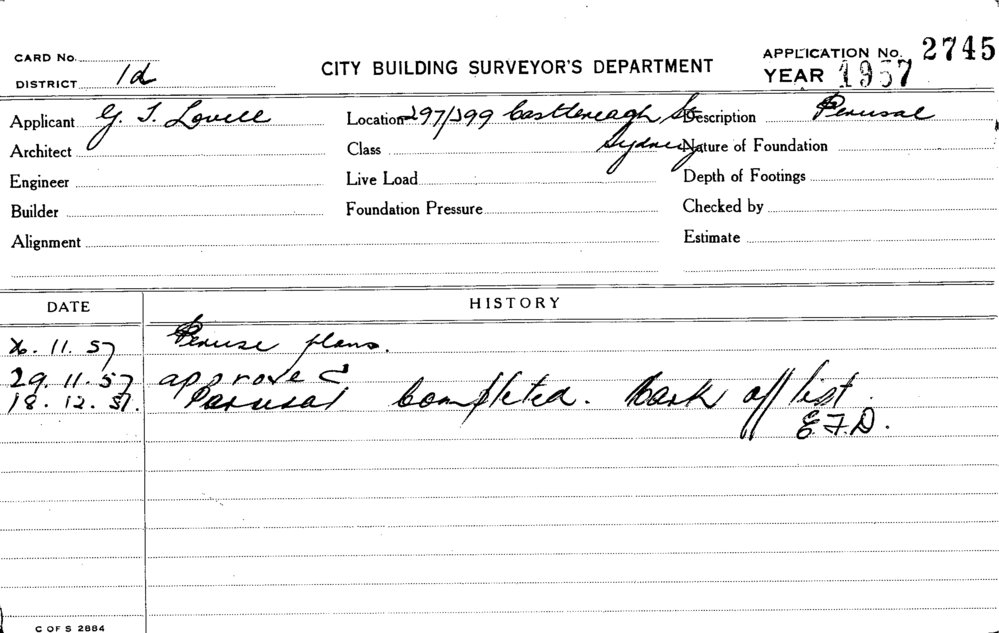 CARD No.
DISTRICT 1d
CITY BUILDING SURVEYOR'S DEPARTMENT
APPLICATION No. 2745
YEAR 1957
Applicant G. J. Lovell
Location 297/299 Castlereagh St
Sydney
Description Perusal
Architect
Class
Nature of Foundation
Engineer
Live Load
Depth of Footings
Builder
Foundation Pressure
Checked by
Alignment
Estimate
DATE HISTORY
.11.57 Peruse plans.
29.11.57 approved
18.12.57. Perusal completed. Mark off list.
E.F.D.
C OF S 2884